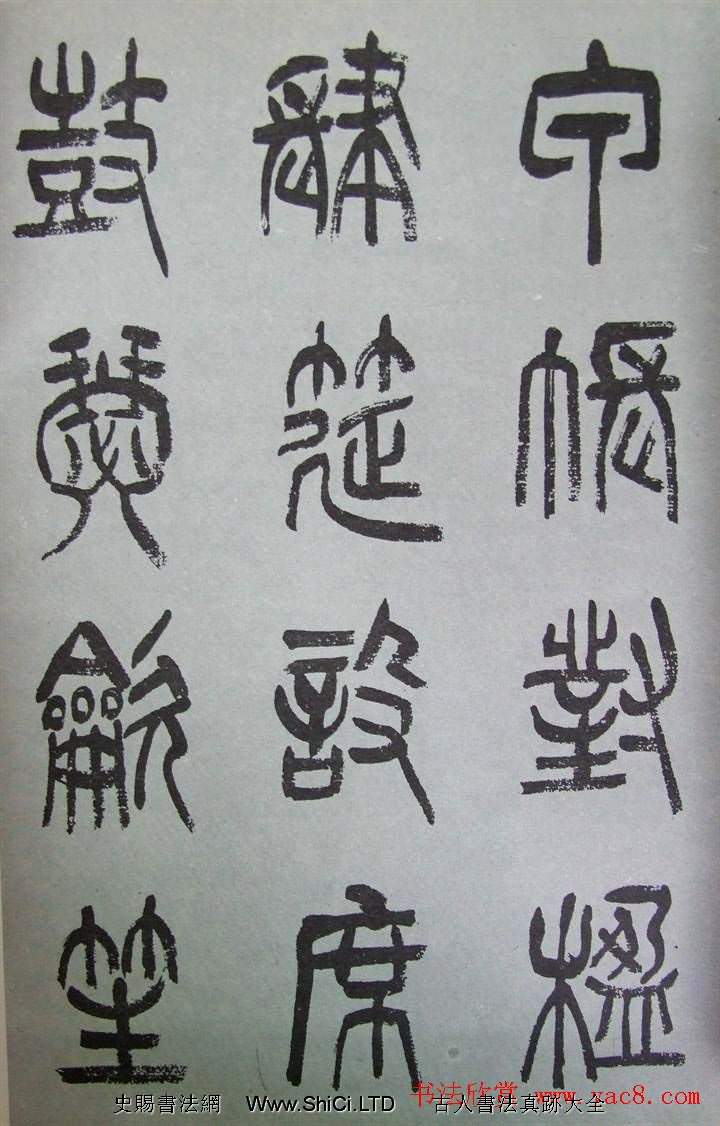 甲帳對楹
肆筵設席
鼓瑟龡笙
书法欣赏 www.yac8.com
史賜書法網 Www.ShiCi.LTD 古人書法真跡大全